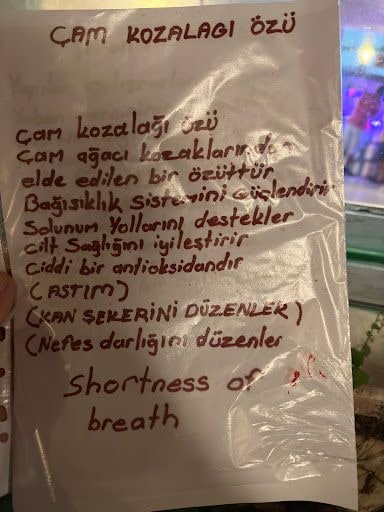 ÇAM KOZALAGI ÖZÜ
Çam kozalağı özü
Çam ağacı kozaklarından
elde edilen bir özüttür
Bağışıklık Sistemini Güçlendirir
Solunum Yollarını destekler
Cilt Sağlığını iyileştirir
Ciddi bir antioksidandır
(ASTIM)
(KAN ŞEKERİNİ DÜZENLER)
(Nefes darlığını düzenler
Shortness of
breath